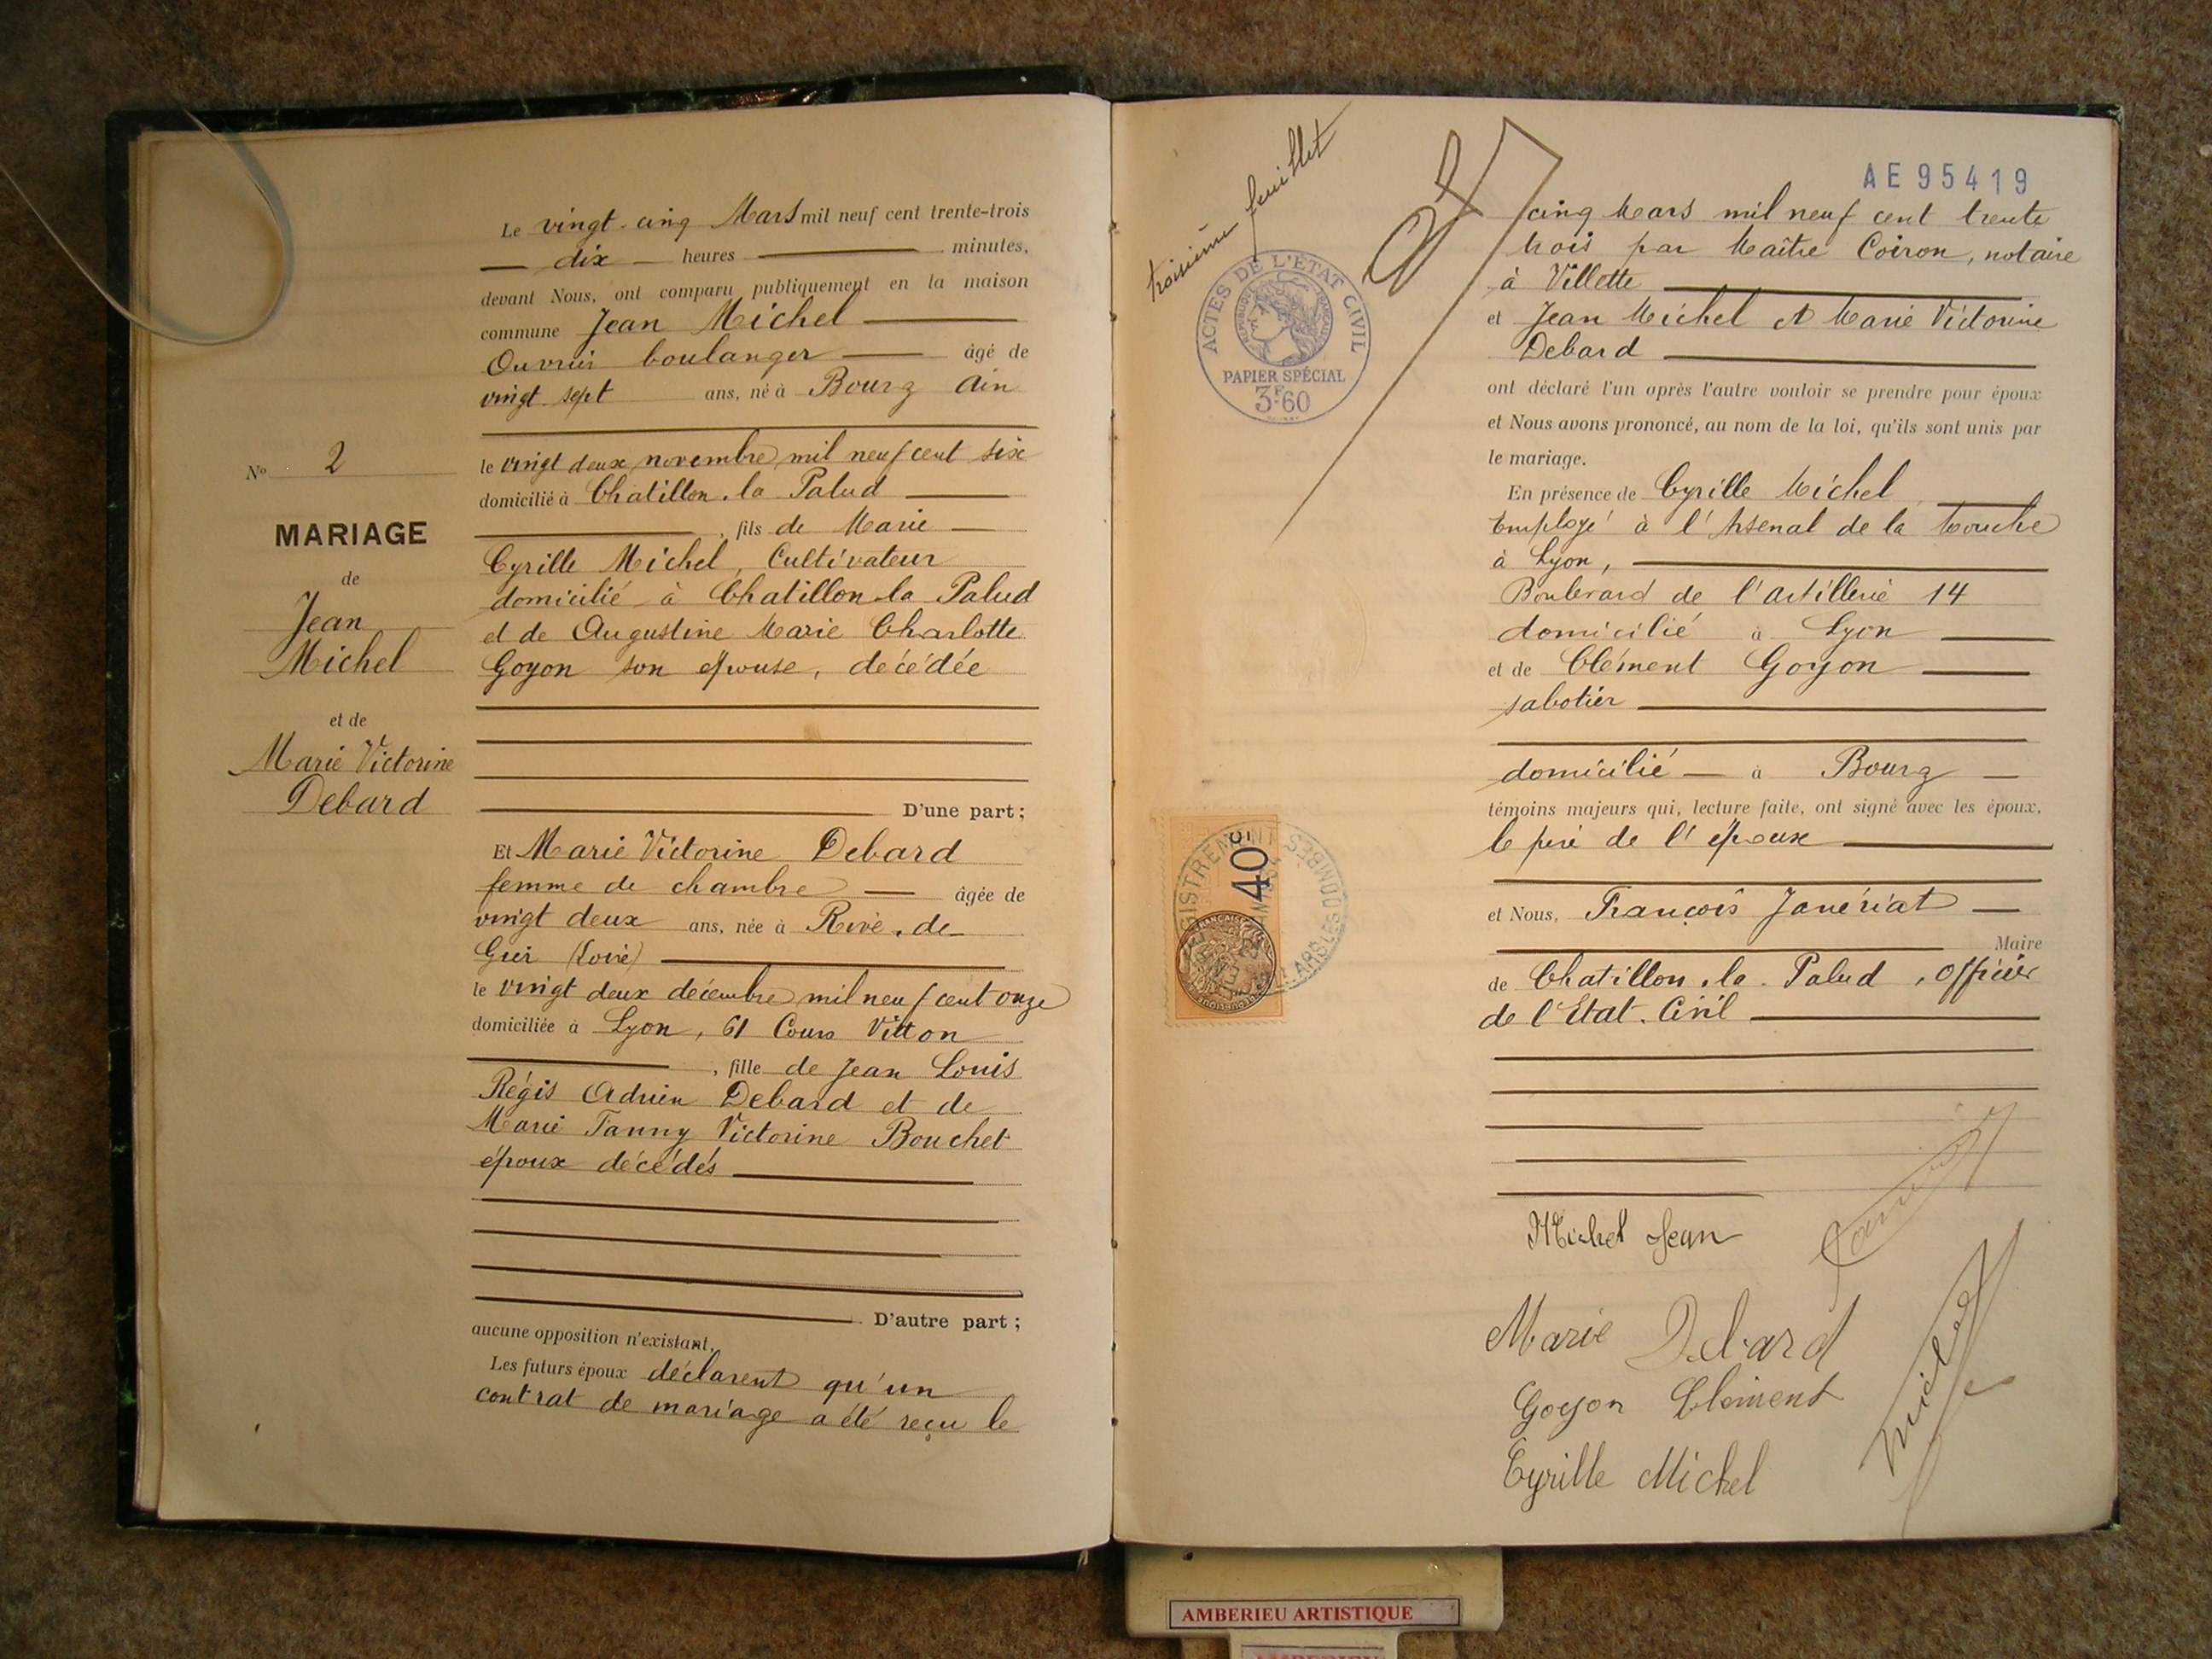 Le vingt-cinq Mars mil neuf cent trente-trois
dix heures minutes,
devant Nous, ont comparu publiquement en la maison
commune Jean Michel
Ouvrier boulanger âgé de
vingt sept ans, né à Bourg Ain
le vingt deux novembre mil neuf cent six
domicilié à Chatillon-la Palud
, fils de Marie
Cyrille Michel, Cultivateur
domicilié à Chatillon-la Palud
et de Augustine Marie Charlotte
Goyon son épouse, décédée
D'une part;
N° 2
MARIAGE
de
Jean
Michel
et de
Marie Victorine
Debard
Et Marie Victorine Debard
femme de chambre âgée de
vingt deux ans, née à Rive-de-
Gier (Loire)
le vingt deux décembre mil neuf cent onze
domiciliée à Lyon, 61 Cours Vitton
, fille de Jean Louis
Régis Adrien Debard et de
Marie Fanny Victorine Bouchet
époux décédés
D'autre part;
aucune opposition n'existant,
Les futurs époux déclarent qu'un
contrat de mariage a été reçu le
troisième feuillet
AE95419
ACTES DE L'ÉTAT CIVIL
RÉPUBLIQUE FRANÇAISE
PAPIER SPÉCIAL
3F.60
cinq Mars mil neuf cent trente
trois par Maître Coiron, notaire
à Villette
et Jean Michel et Marie Victorine
Debard
ont déclaré l'un après l'autre vouloir se prendre pour époux
et Nous avons prononcé, au nom de la loi, qu'ils sont unis par
le mariage.
En présence de Cyrille Michel
Employé à l'Arsenal de la Mouche
à Lyon,
Boulevard de l'artillerie 14
domicilié à Lyon
et de Clément Goyon
sabotier
domicilié à Bourg
témoins majeurs qui, lecture faite, ont signé avec les époux,
le père de l'époux
et Nous, François Janériat
Maire
de Chatillon-la-Palud, Officier
de l'Etat-Civil
40c
Michel Jean
Marie Debard
Goyon Clément
Cyrille Michel
Michel
AMBERIEU ARTISTIQUE